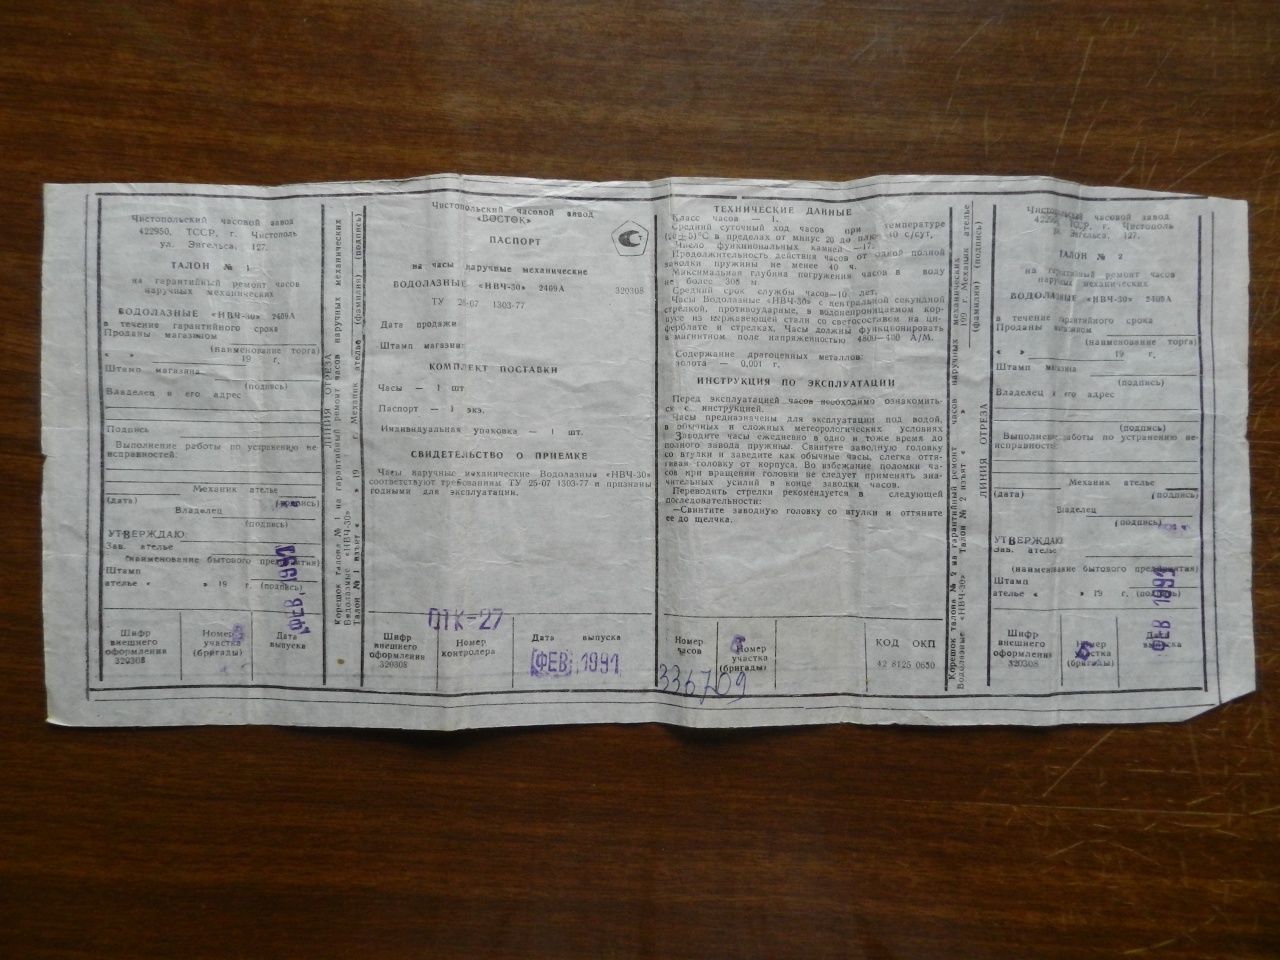 Чистопольский часовой завод
422950, ТССР, г. Чистополь
ул. Энгельса, 127.
ТАЛОН № 1
на гарантийный ремонт часов
наручных механических
ВОДОЛАЗНЫЕ «НВЧ-30» 2409А
в течение гарантийного срока
Проданы магазином
(наименование торга)
« » 19 г.
Штамп магазина
(подпись)
Владелец и его адрес
Подпись
Выполнение работы по устранению не-
исправностей:
Механик ателье
(дата) (подпись)
Владелец
(подпись)
УТВЕРЖДАЮ:
Зав. ателье
(наименование бытового предприятия)
Штамп
ателье « » 19 г. (подпись)
ФЕВ. 1991
Шифр
внешнего
оформления
320308
Номер
участка
(бригады)
Дата
выпуска
ЛИНИЯ ОТРЕЗА
Корешок талона № 1 на гарантийный ремонт часов наручных механических
Водолазные «НВЧ-30»
Талон № 1 взъят « » 19 г. Механик ателье (фамилия) (подпись)
Чистопольский часовой завод
«ВОСТОК»
ПАСПОРТ
на часы наручные механические
ВОДОЛАЗНЫЕ «НВЧ-30» 2409А 320308
ТУ 25-07 1303-77
Дата продажи
Штамп магазина
КОМПЛЕКТ ПОСТАВКИ
Часы — 1 шт
Паспорт — 1 экз.
Индивидуальная упаковка — 1 шт.
СВИДЕТЕЛЬСТВО О ПРИЕМКЕ
Часы наручные механические Водолазные «НВЧ-30»
соответствуют требованиям ТУ 25-07 1303-77 и признаны
годными для эксплуатации.
ОТК-27
Шифр
внешнего
оформления
320308
Номер
контролера
Дата выпуска
ФЕВ. 1991
ТЕХНИЧЕСКИЕ ДАННЫЕ
Класс часов — 1.
Средний суточный ход часов при температуре
(20±5)°С в пределах от минус 20 до плюс 40 с/сут.
Число функциональных камней —17.
Продолжительность действия часов от одной полной
заводки пружины не менее 40 ч.
Максимальная глубина погружения часов в воду
не более 300 м.
Средний срок службы часов—10 лет.
Часы Водолазные «НВЧ-30» с центральной секундной
стрелкой, противоударные, в водонепроницаемом кор-
пусе из нержавеющей стали со светосоставом на ци-
ферблате и стрелках. Часы должны функционировать
в магнитном поле напряженностью 4800—400 А/М.
Содержание драгоценных металлов:
золота — 0,001 г.
ИНСТРУКЦИЯ ПО ЭКСПЛУАТАЦИИ
Перед эксплуатацией часов необходимо ознакомить-
ся с инструкцией.
Часы предназначены для эксплуатации под водой,
в обычных и сложных метеорологических условиях
Заводите часы ежедневно в одно и тоже время до
полного завода пружины. Свинтите заводную головку
со втулки и заведите как обычные часы, слегка оття-
гивая головку от корпуса. Во избежание поломки ча-
сов при вращении головки не следует применять зна-
чительных усилий в конце заводки часов.
Переводить стрелки рекомендуется в следующей
последовательности:
—Свинтите заводную головку со втулки и оттяните
ее до щелчка.
Номер
часов
336709
Номер
участка
(бригады)
КОД ОКП
42 8125 0650
Корешок талона № 2 на гарантийный ремонт часов наручных механических
Водолазные «НВЧ-30» Талон № 2 взъят « » 199 г. Механик ателье
(фамилия) (подпись)
ЛИНИЯ ОТРЕЗА
Чистопольский часовой завод
422950, ТССР, г. Чистополь
ул. Энгельса, 127.
ТАЛОН № 2
на гарантийный ремонт часов
наручных механических
ВОДОЛАЗНЫЕ «НВЧ-30» 2409А
в течение гарантийного срока
Проданы магазином
(наименование торга)
« » 19 г.
Штамп магазина
(подпись)
Владелец и его адрес
Выполнение работы по устранению не-
исправностей:
Механик ателье
(дата) (подпись)
Владелец
(подпись)
УТВЕРЖДАЮ:
Зав. ателье
(наименование бытового предприятия)
Штамп
ателье « » 19 г. (подпись)
ФЕВ 1991
Шифр
внешнего
оформления
320308
Номер
участка
(бригады)
Дата
выпуска